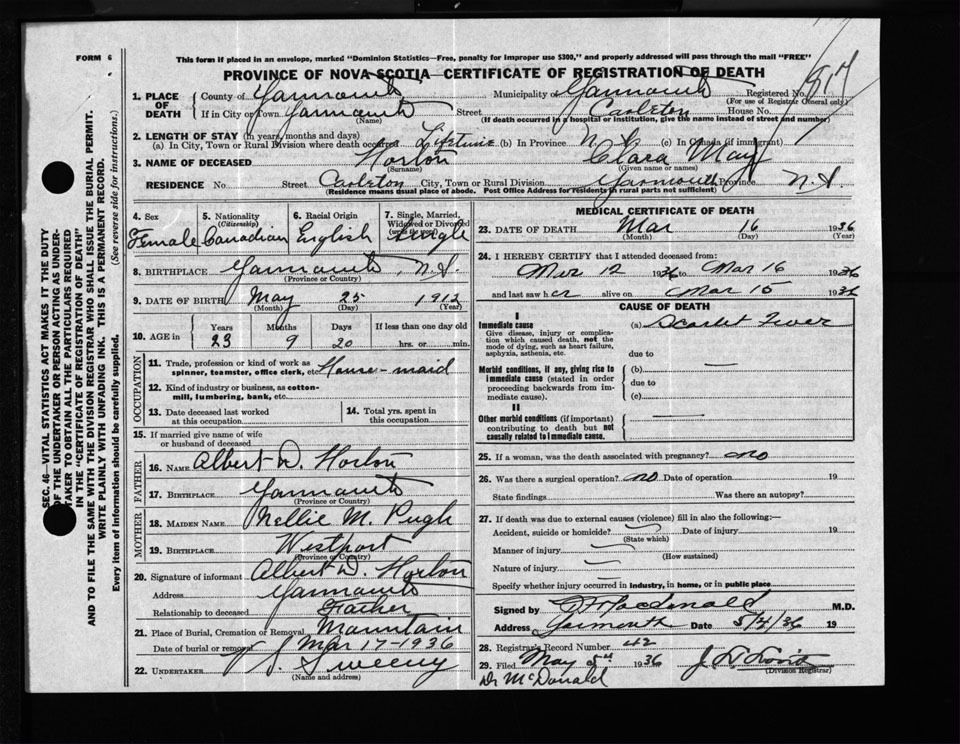 FORM 6
This form if placed in an envelope, marked "Dominion Statistics—Free, penalty for improper use $300," and properly addressed will pass through the mail "FREE"
PROVINCE OF NOVA SCOTIA—CERTIFICATE OF REGISTRATION OF DEATH
817
1. PLACE OF DEATH
County of Yarmouth Municipality of Yarmouth Registered No.
(For use of Registrar General only)
If in City or Town Yarmouth Street Carleton House No.
(Name) (If death occurred in a hospital or institution, give the name instead of street and number)
2. LENGTH OF STAY (in years, months and days)
(a) In City, Town or Rural Division where death occurred Lifetime (b) In Province N. S. (c) In Canada (if immigrant)
3. NAME OF DECEASED Horton Clara May
(Surname) (Given name or names)
RESIDENCE No Street Carleton City, Town or Rural Division Yarmouth Province N.S.
(Residence means usual place of abode. Post Office Address for residents in rural parts not sufficient)
4. Sex
Female
5. Nationality
(Citizenship)
Canadian
6. Racial Origin
English
7. Single, Married, Widowed or Divorced
Single
8. BIRTHPLACE Yarmouth, N.S.
(Province or Country)
9. DATE OF BIRTH May 25 1912
(Month) (Day) (Year)
10. AGE in
Years Months Days If less than one day old
23 9 20 hrs. or min.
OCCUPATION
11. Trade, profession or kind of work as spinner, teamster, office clerk, etc. House-maid
12. Kind of industry or business, as cotton-mill, lumbering, bank, etc.
13. Date deceased last worked at this occupation
14. Total yrs. spent in this occupation
15. If married give name of wife or husband of deceased
FATHER
16. NAME Albert D. Horton
17. BIRTHPLACE Yarmouth
(Province or Country)
MOTHER
18. MAIDEN NAME Nellie M. Pugh
19. BIRTHPLACE Westport
(Province or Country)
20. Signature of informant Albert D. Horton
Address Yarmouth
Relationship to deceased Father
21. Place of Burial, Cremation or Removal Mountain
Date of burial or removal Mar 17-1936
22. UNDERTAKER V. S. Sweeny
(Name and address)
MEDICAL CERTIFICATE OF DEATH
23. DATE OF DEATH Mar 16 1936
(Month) (Day) (Year)
24. I HEREBY CERTIFY that I attended deceased from:
Mar 12 1936 to Mar 16 1936
and last saw her alive on Mar 15 1936
CAUSE OF DEATH
I
Immediate cause
Give disease, injury or complication which caused death, not the mode of dying, such as heart failure, asphyxia, asthenia, etc.
(a) Scarlet Fever
due to
Morbid conditions, if any, giving rise to immediate cause (stated in order proceeding backwards from immediate cause).
(b)
due to
(c)
II
Other morbid conditions (if important) contributing to death but not causally related to immediate cause.
25. If a woman, was the death associated with pregnancy? no
26. Was there a surgical operation? no Date of operation 19
State findings Was there an autopsy?
27. If death was due to external causes (violence) fill in also the following:—
Accident, suicide or homicide? Date of injury 19
(State which)
Manner of injury
(How sustained)
Nature of injury
Specify whether injury occurred in industry, in home, or in public place
Signed by Macdonald M.D.
Address Yarmouth Date 5/4/36 19
28. Registrar's Record Number 42
29. Filed May 5th 1936
(Division Registrar)
Dr McDonald
SEC. 46—VITAL STATISTICS ACT MAKES IT THE DUTY OF THE UNDERTAKER OR PERSON ACTING AS UNDERTAKER TO OBTAIN ALL THE PARTICULARS REQUIRED IN THE "CERTIFICATE OF REGISTRATION OF DEATH" AND TO FILE THE SAME WITH THE DIVISION REGISTRAR WHO SHALL ISSUE THE BURIAL PERMIT.
WRITE PLAINLY WITH UNFADING INK. THIS IS A PERMANENT RECORD.
Every item of information should be carefully supplied. (See reverse side for instructions.)